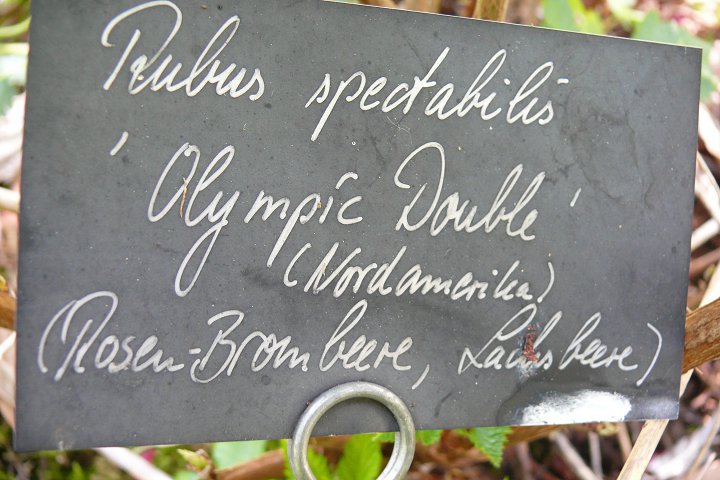 Rubus spectabilis
'Olympic Double'
(Nordamerika)
(Rosen-Brombeere, Lachsbeere)